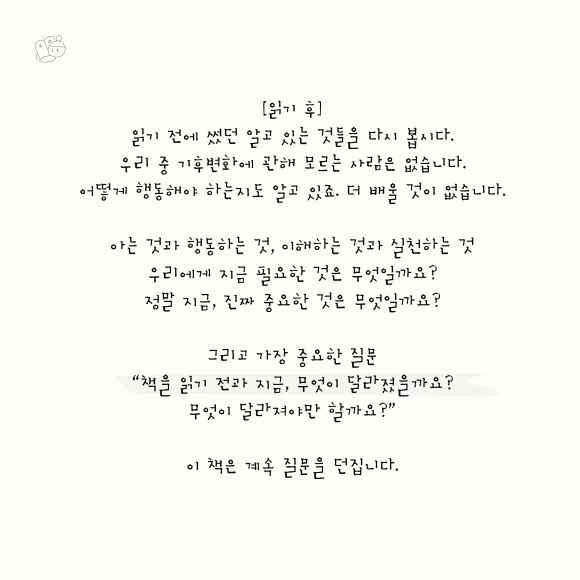 [읽기 후]
읽기 전에 썼던 알고 있는 것들을 다시 봅시다.
우리 중 기후변화에 관해 모르는 사람은 없습니다.
어떻게 행동해야 하는지도 알고 있죠. 더 배울 것이 없습니다.
아는 것과 행동하는 것, 이해하는 것과 실천하는 것
우리에게 지금 필요한 것은 무엇일까요?
정말 지금, 진짜 중요한 것은 무엇일까요?
그리고 가장 중요한 질문
“책을 읽기 전과 지금, 무엇이 달라졌을까요?
무엇이 달라져야만 할까요?”
이 책은 계속 질문을 던집니다.